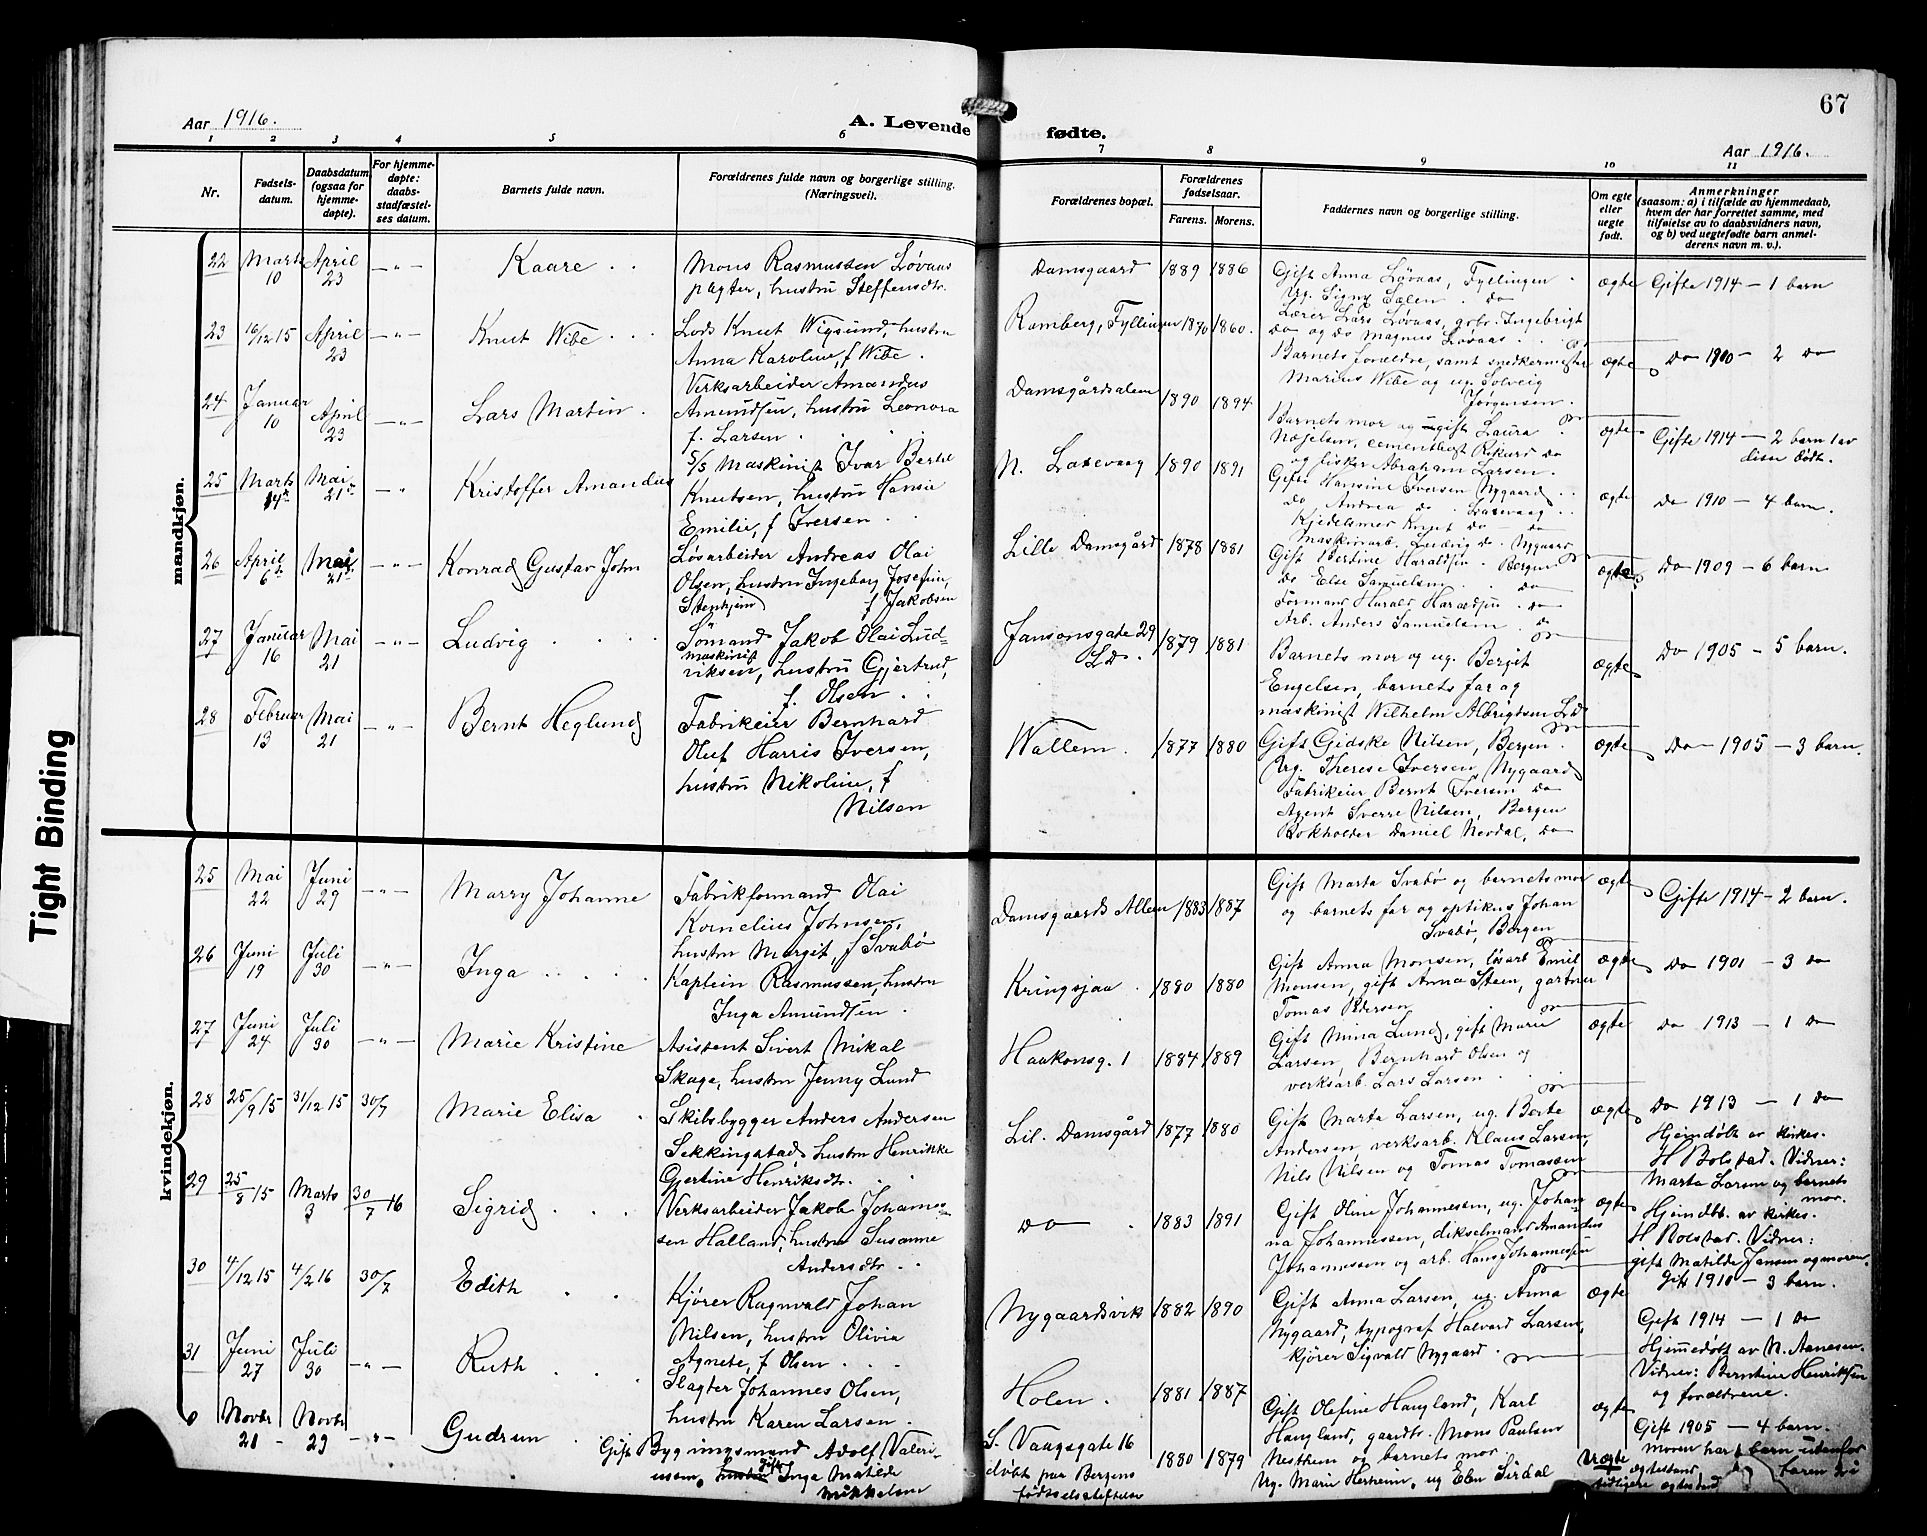 Aar 1916.
A. Levende
fødte.
67
Aar 1916.
1 2 3 4 5 6 7 8 9 10 11
Nr.
Fødsels-
datum.
Daabsdatum
(ogsaa for
hjemme-
døpte).
For hjemme-
døpte:
daabs-
stadfæstel-
ses datum.
Barnets fulde navn.
Forældrenes fulde navn og borgerlige stilling.
(Næringsvei).
Forældrenes bopæl.
Forældrenes
fødselsaar.
Farens. Morens.
Faddernes navn og borgerlige stilling.
Om egte
eller
uegte
født.
Anmerkninger
(saasom: a) i tilfælde av hjemmedaab,
hvem der har forrettet samme, med
tilføielse av to daabsvidners navn,
og b) ved uegtefødte barn anmel-
derens navn m. v.).
mandkjøn.
22 Marts 10 April 23 —"— Kaare . .
Mons Rasmussen Løvaas
pagter, hustru Steffensdtr.
Damsgaard 1889 1886
Gift Anna Løvaas, Fyllingen
Ug. Signy Sælen . do
Lærer Lars Løvaas, gbr. Ingebrigt
do og do Magnus Løvaas . .
ægte Gifte 1914 — 1 barn
23 16/12 15 April 23 —"— Knut Wibe . . .
Lods Knut Wigsund, hustru
Anna Karoline, f Wibe .
Ramberg, Fyllingen 1870 1860.
Barnets forældre, samt snedkermester
Marius Wibe og ug. Solveig
Jørgensen.
ægte Do 1900 — 2 Do
24 Januar 10 April 23 —"— Lars Martin .
Verksarbeider Amandus
Amundsen, hustru Leonora
f. Larsen . .
Damsgårdsalem 1890 1894
Barnets mor og gift Laura
Næjelsen, cementstøft Rikard do
og fisker Abraham Larsen.
ægte Gifte 1914 — 2 barn 1 av
disse dødt.
25 Marts 14de Mai 21de —"— Kristoffer Amandus
S/S Maskinist Ivar Berthel
Knutsen, hustru Hansine
Emilie, f Iversen . .
N. Laxevaag 1890 1891
Gifte Hansine Iversen Nygaard . .
do Andrea do . Laxevaag . .
Kjedelsmed Knut do — do
Maskinarb. Ludvig do . Nygaard
ægte Do 1910 — 4 barn.
26 April 6te Mai 21de —"— Konrad Gustav John
Løsarbeider Andreas Olai
Olsen, hustru Ingeborg Josefine
Stenhjem f Jakobsen
Lille Damsgård 1878 1881
Gift Bertine Haraldsen . Bergen
do Else Samuelsen . do
Formand Harald Haraldsen . do
Arb. Anders Samuelsen . do
ægte Do 1909 — 6 barn
27 Januar 16 Mai 21 —"— Ludvig . . . .
Sömand Jakob Olai Lud-
maskinist
riksen, hustru Gjertrud,
f. Olsen . .
Jansonsgate 29
Ld. 1879 1881
Barnets mor og ug. Bergit
Engelsen, barnets far og
maskinist Wilhelm Albrigtsen Ld
ægte Do 1905 — 5 barn.
28 Februar 13 Mai 21 —"— Bernt Heglund
Fabrikeier Bernhard
Oluf Harris Iversen,
hustru Nikoline, f
Nilsen
Wallem . 1877 1880
Gift Gidske Nilsen, Bergen .
Ug. Therese Iversen, Nygaard
Fabrikeier Bernt Iversen do
Agent Sverre Nilsen, Bergen
Bokholder Daniel Nevdal, do
ægte Do 1905 — 3 barn.
kvindekjøn.
25 Mai 22 Juni 29 —"— Marry Johanne
Fabrikformand Olai
Kornelius Johnsen,
hustru Margit, f Svabø
Damsgaards Allem 1883 1887
Gift Marta Svabø og barnets mor
og barnets far og optikus Johan
Svabø, Bergen
ægte Gifte 1914 — 2 barn.
26 Juni 19 Juli 30 —"— Inga . . . .
Kaptein Rasmussen, hustru
Inga Amundsen .
Kringsjaa . 1880 1880
Gift Anna Monsen, løsarb Emil
Monsen, gift Anna Steen, gartner
Tomas Pedersen
ægte Do 1901 — 3 Do
27 Juni 24 Juli 30 —"— Marie Kristine
Asistent Sivert Mikal
Skage, hustru Jenny Lund
Haakonsg. 1 1884 1889
Gift Mina Lund, gift Marie
Larsen, Bernhard Olsen og
verksarb. Lars Larsen . .
ægte do 1913 — 1 Do
28 25/9 15 31/12 15 30/7 Marie Elisa .
Skibsbygger Anders Andersen
Sekkingstad, hustru Henrikke
Gjertine Henriksdtr. .
Lil. Damsgård 1877 1880
Gift Marta Larsen, ug. Berte
Andersen, verksarb. Klaus Larsen,
Nils Nilsen og Tomas Tomassen
ægte Do 1913 — 1 Do
Hjemdøbt av kirkes.
H Bolstad. Vidner:
Marta Larsen og barnets
mor.
29 25/8 15 Marts 3 30/7 16 Sigrid . . .
Verksarbeider Jakob Johannes-
sen Halland, hustru Susanne
Andersdtr. . .
do . 1883 1891
Gift Oline Johannessen, ug. Johan-
na Johannessen, dikselmand Amandus
Johannessen og arb. Hans Johannessen
ægte Hjemdbt. av kirkes.
H Bolstad. Vidner:
gift Matilde Jansen og moren.
Gift 1910 — 3 barn.
30 4/12 15 4/2 16 30/7 Edith . .
Kjører Ragnvald Johan
Nilsen, hustru Olivia
Agnete, f Olsen . . .
Nygaardsvik 1882 1890
Gift Anna Larsen, ug. Anna
Nygaard, typograf Halvard Larsen,
kjører Sigvald Nygaard .
ægte Gift 1914 — 1 Do
Hjemmedøbt av N. Aanesen.
Vidner: Berntine Henriksen
og forældrene.
31 Juni 27 Juli 30 —"— Ruth . . . .
Slagter Johannes Olsen,
hustru Karen Larsen .
Holen . 1881 1887
Gift Olefine Haugland, Karl
Haugland, gardtr. Mons Paulsen
Nesttun og barnets mor.
ægte Gift 1905 — 4 barn.
Novbr 21 Novbr 29 —"— Gudrun .
Gift Bygningsmand Adolf Valeri-
ussen, hustru gift Inga Matilde
Mikkelsen
S. Vaagsgate 16
døbt paa Bergens
fødselsstiftelse
1880 1879
Ug. Marie Herheim, ug Eben Sirdal
Uægte
moren har 1 barn utenfor
egtestand
tidligere egtestand
Tight Binding